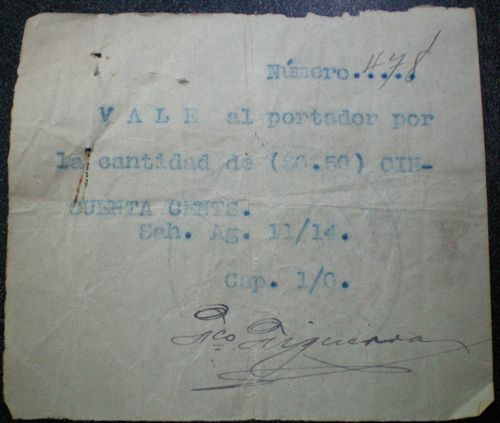 Número..... 478
V A L E al portador por
la cantidad de ($0.50) CIN-
CUENTA CENTS.
Sah. Ag. 11/14.
Cap. 1/O.
Fco. Figueroa